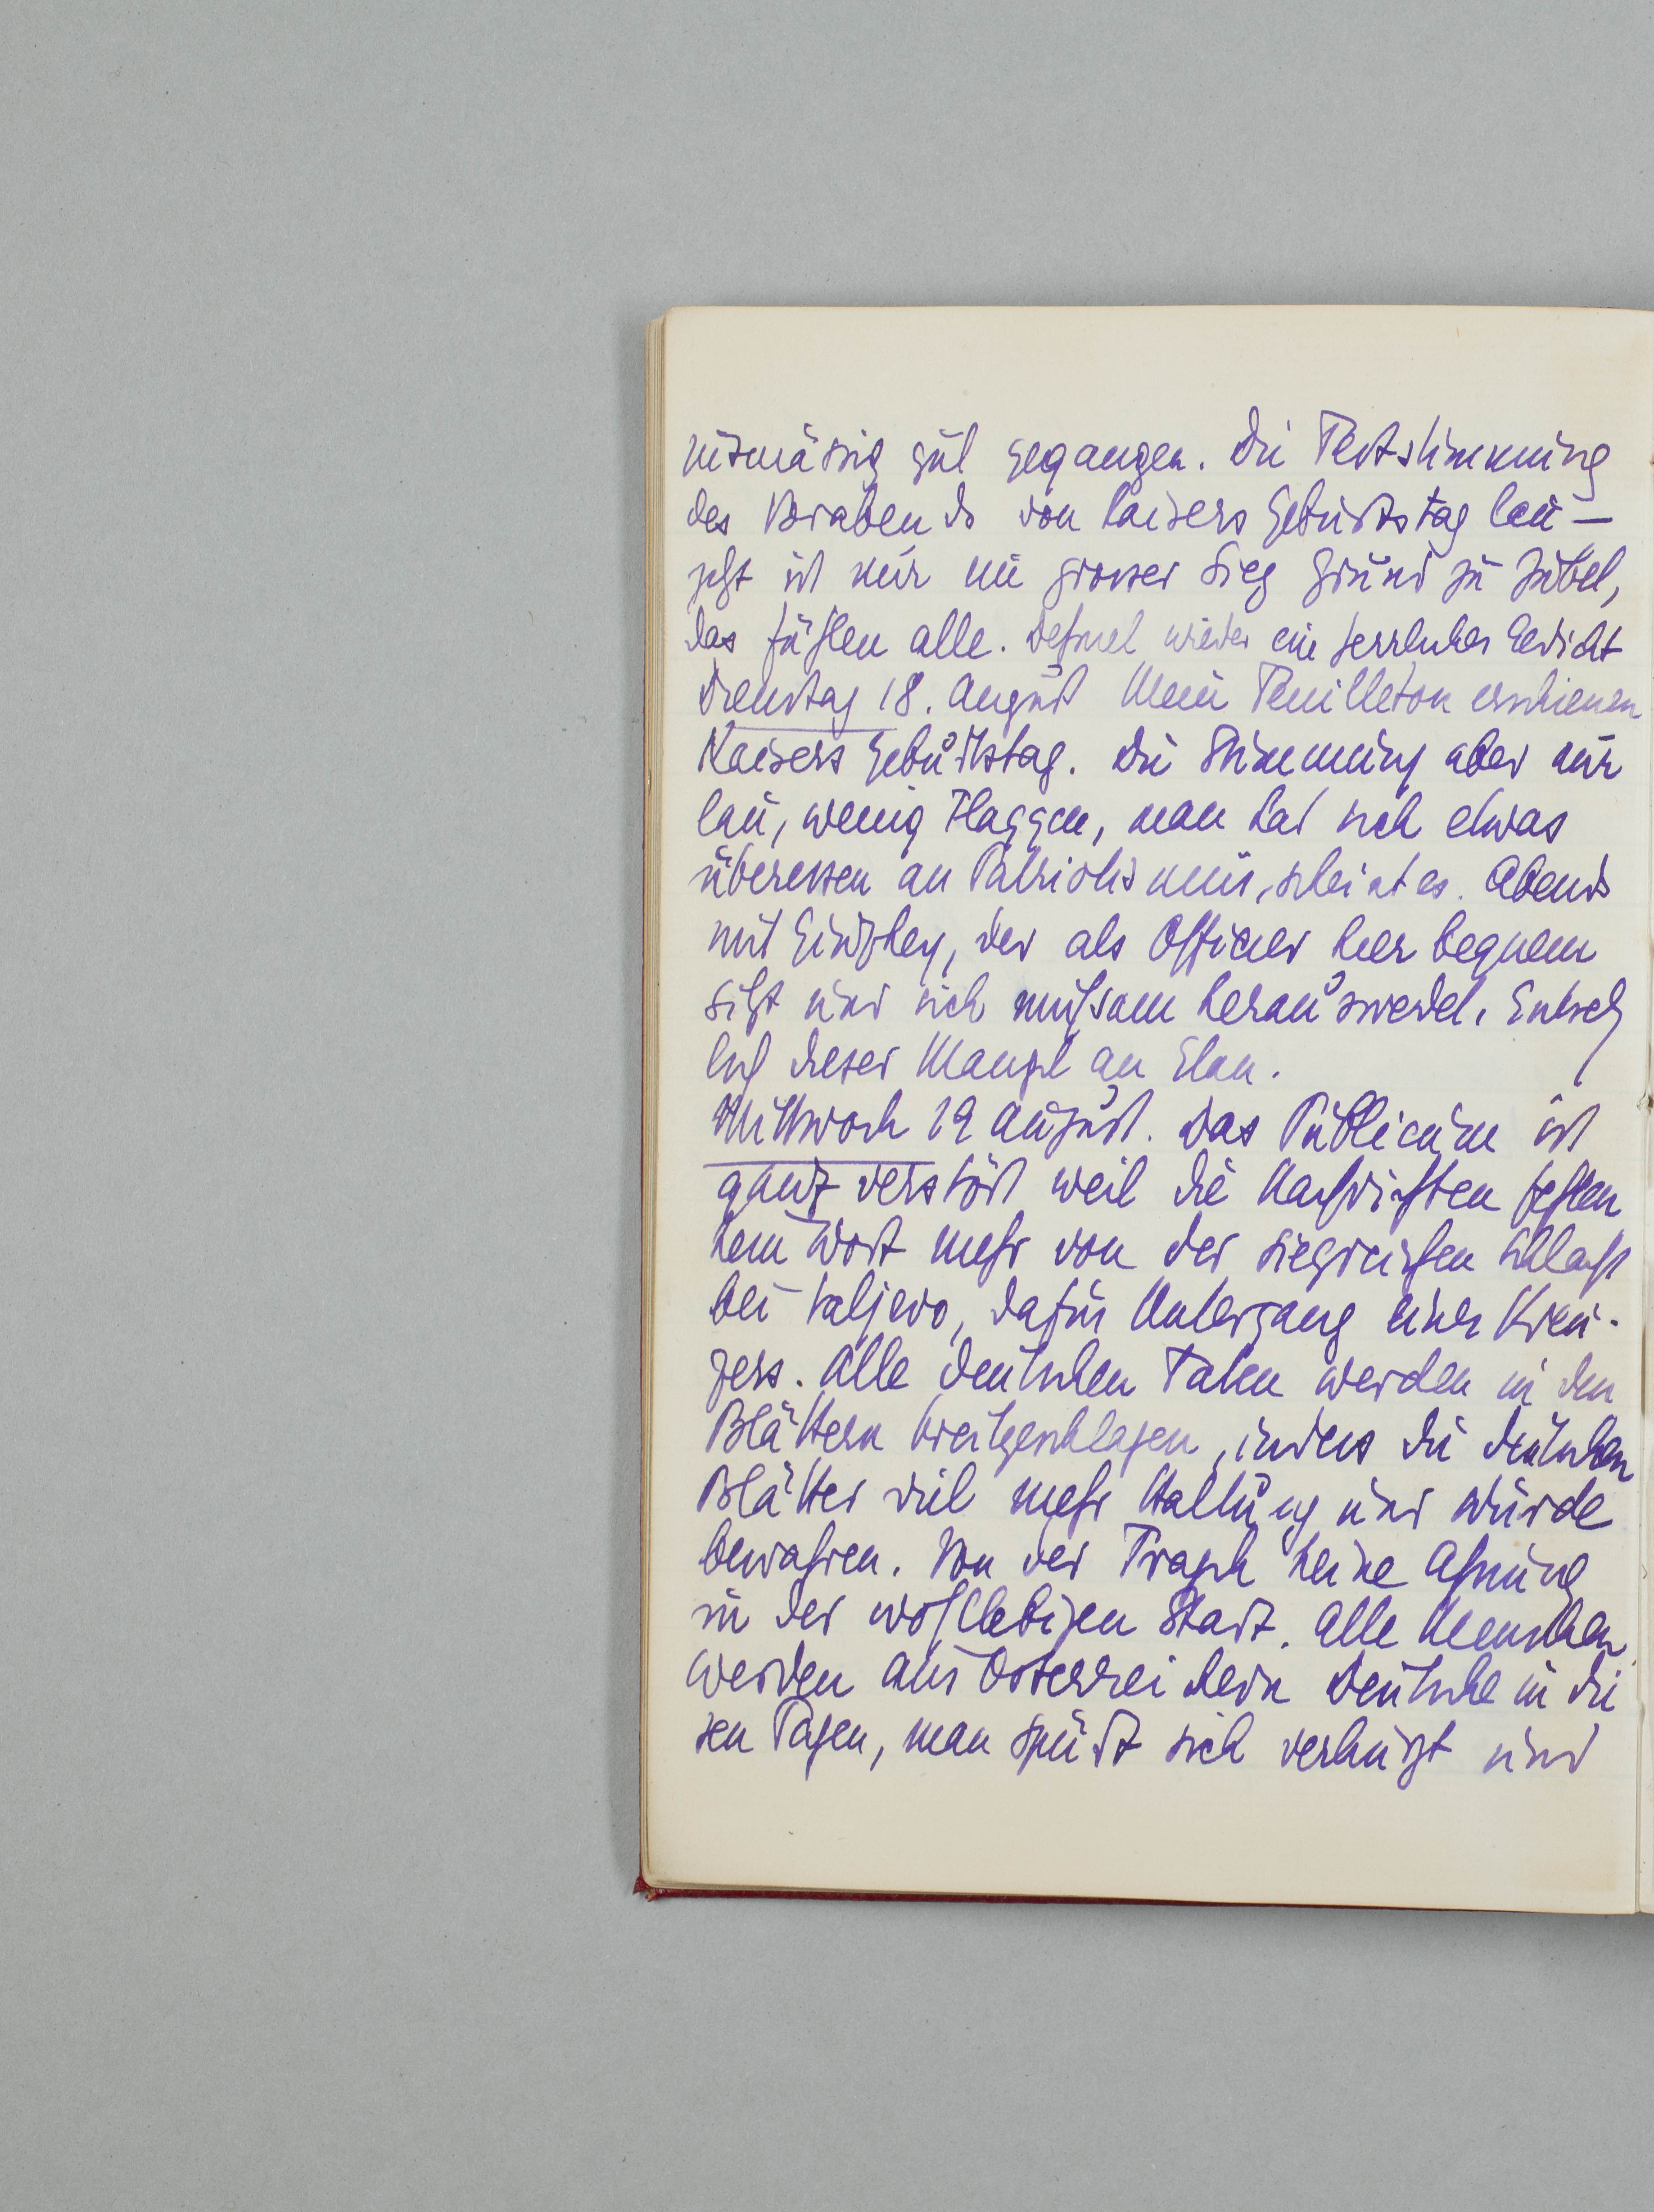 nismässig gut gegangen. Die Feststimmung
des Vorabends von Kaisers Geburtstag lau –
jetzt ist nur ein grosser Sieg Grund zu Jubel,
das fühlen alle. Dehmel wieder ein herrliches Gedicht
Dienstag 18. August Mein Feuilleton erschienen
Kaisers Geburtstag. Die Stimmung aber nur
lau, wenig Flaggen, man hat sich etwas
überessen an Patriotismus, scheint es. Abends
mit Ginzkey, der als Officier hier bequem
sitzt und sich mühsam herauswedel. Entsetz
lich dieser Mangel an Elan.
Mittwoch 19 August. Das Publicum ist
ganz verstört weil die Nachrichten fehlen
kein Wort mehr von der siegreichen Schlacht
bei Valjevo, dafür Untergang eines Kreu-
zers. Alle deutschen Taten werden in den
Blättern breitgeschlagen, indess die deutschen
Blätter viel mehr Haltung und Würde
bewahren. Von der Tragik keine Ahnung
in der wohllebigen Stadt. Alle Menschen
werden aus Österreichern Deutsche in die
sen Tagen, man spürt sich verkürzt und